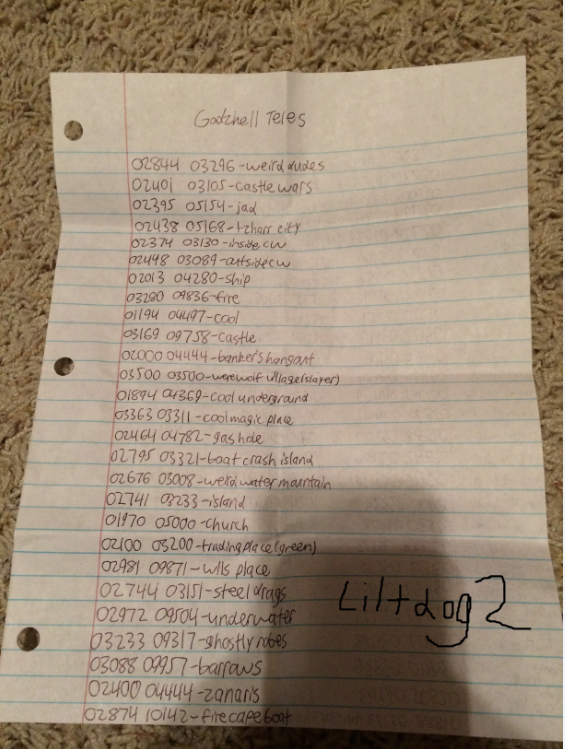 Godzhell Teles
02844 03296-weird dudes
02401 03105-castle wars
02395 05154-jad
02438 05168-tzharr city
02374 03130-inside cw
02448 03089-outside cw
02013 04280-ship
03280 09836-fire
01194 04497-cool
03169 09758-castle
02000 04444-banker's hangout
03500 03500-werewolf village(slayer)
01894 04369-cool underground
03363 03311-cool magic place
02464 04782-gas hole
02795 03321-boat crash island
02676 03008-weird water mountain
02741 03233-island
01970 05000-church
02100 03200-trading place(green)
02981 09871-wlls place
02744 03151-steel drags
02972 09504-underwater
03233 09317-ghostly robes
03088 09957-barraws
02400 04444-zanaris
02874 10142-firecape boat
Liltdog2